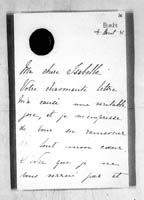 Ma chère Isabelle
Votre charmante lettre
m'a causé une véritable
joie, et je m'empresse
de vous en remercier
de tout mon cœur
que je ne
vous verrai pas et